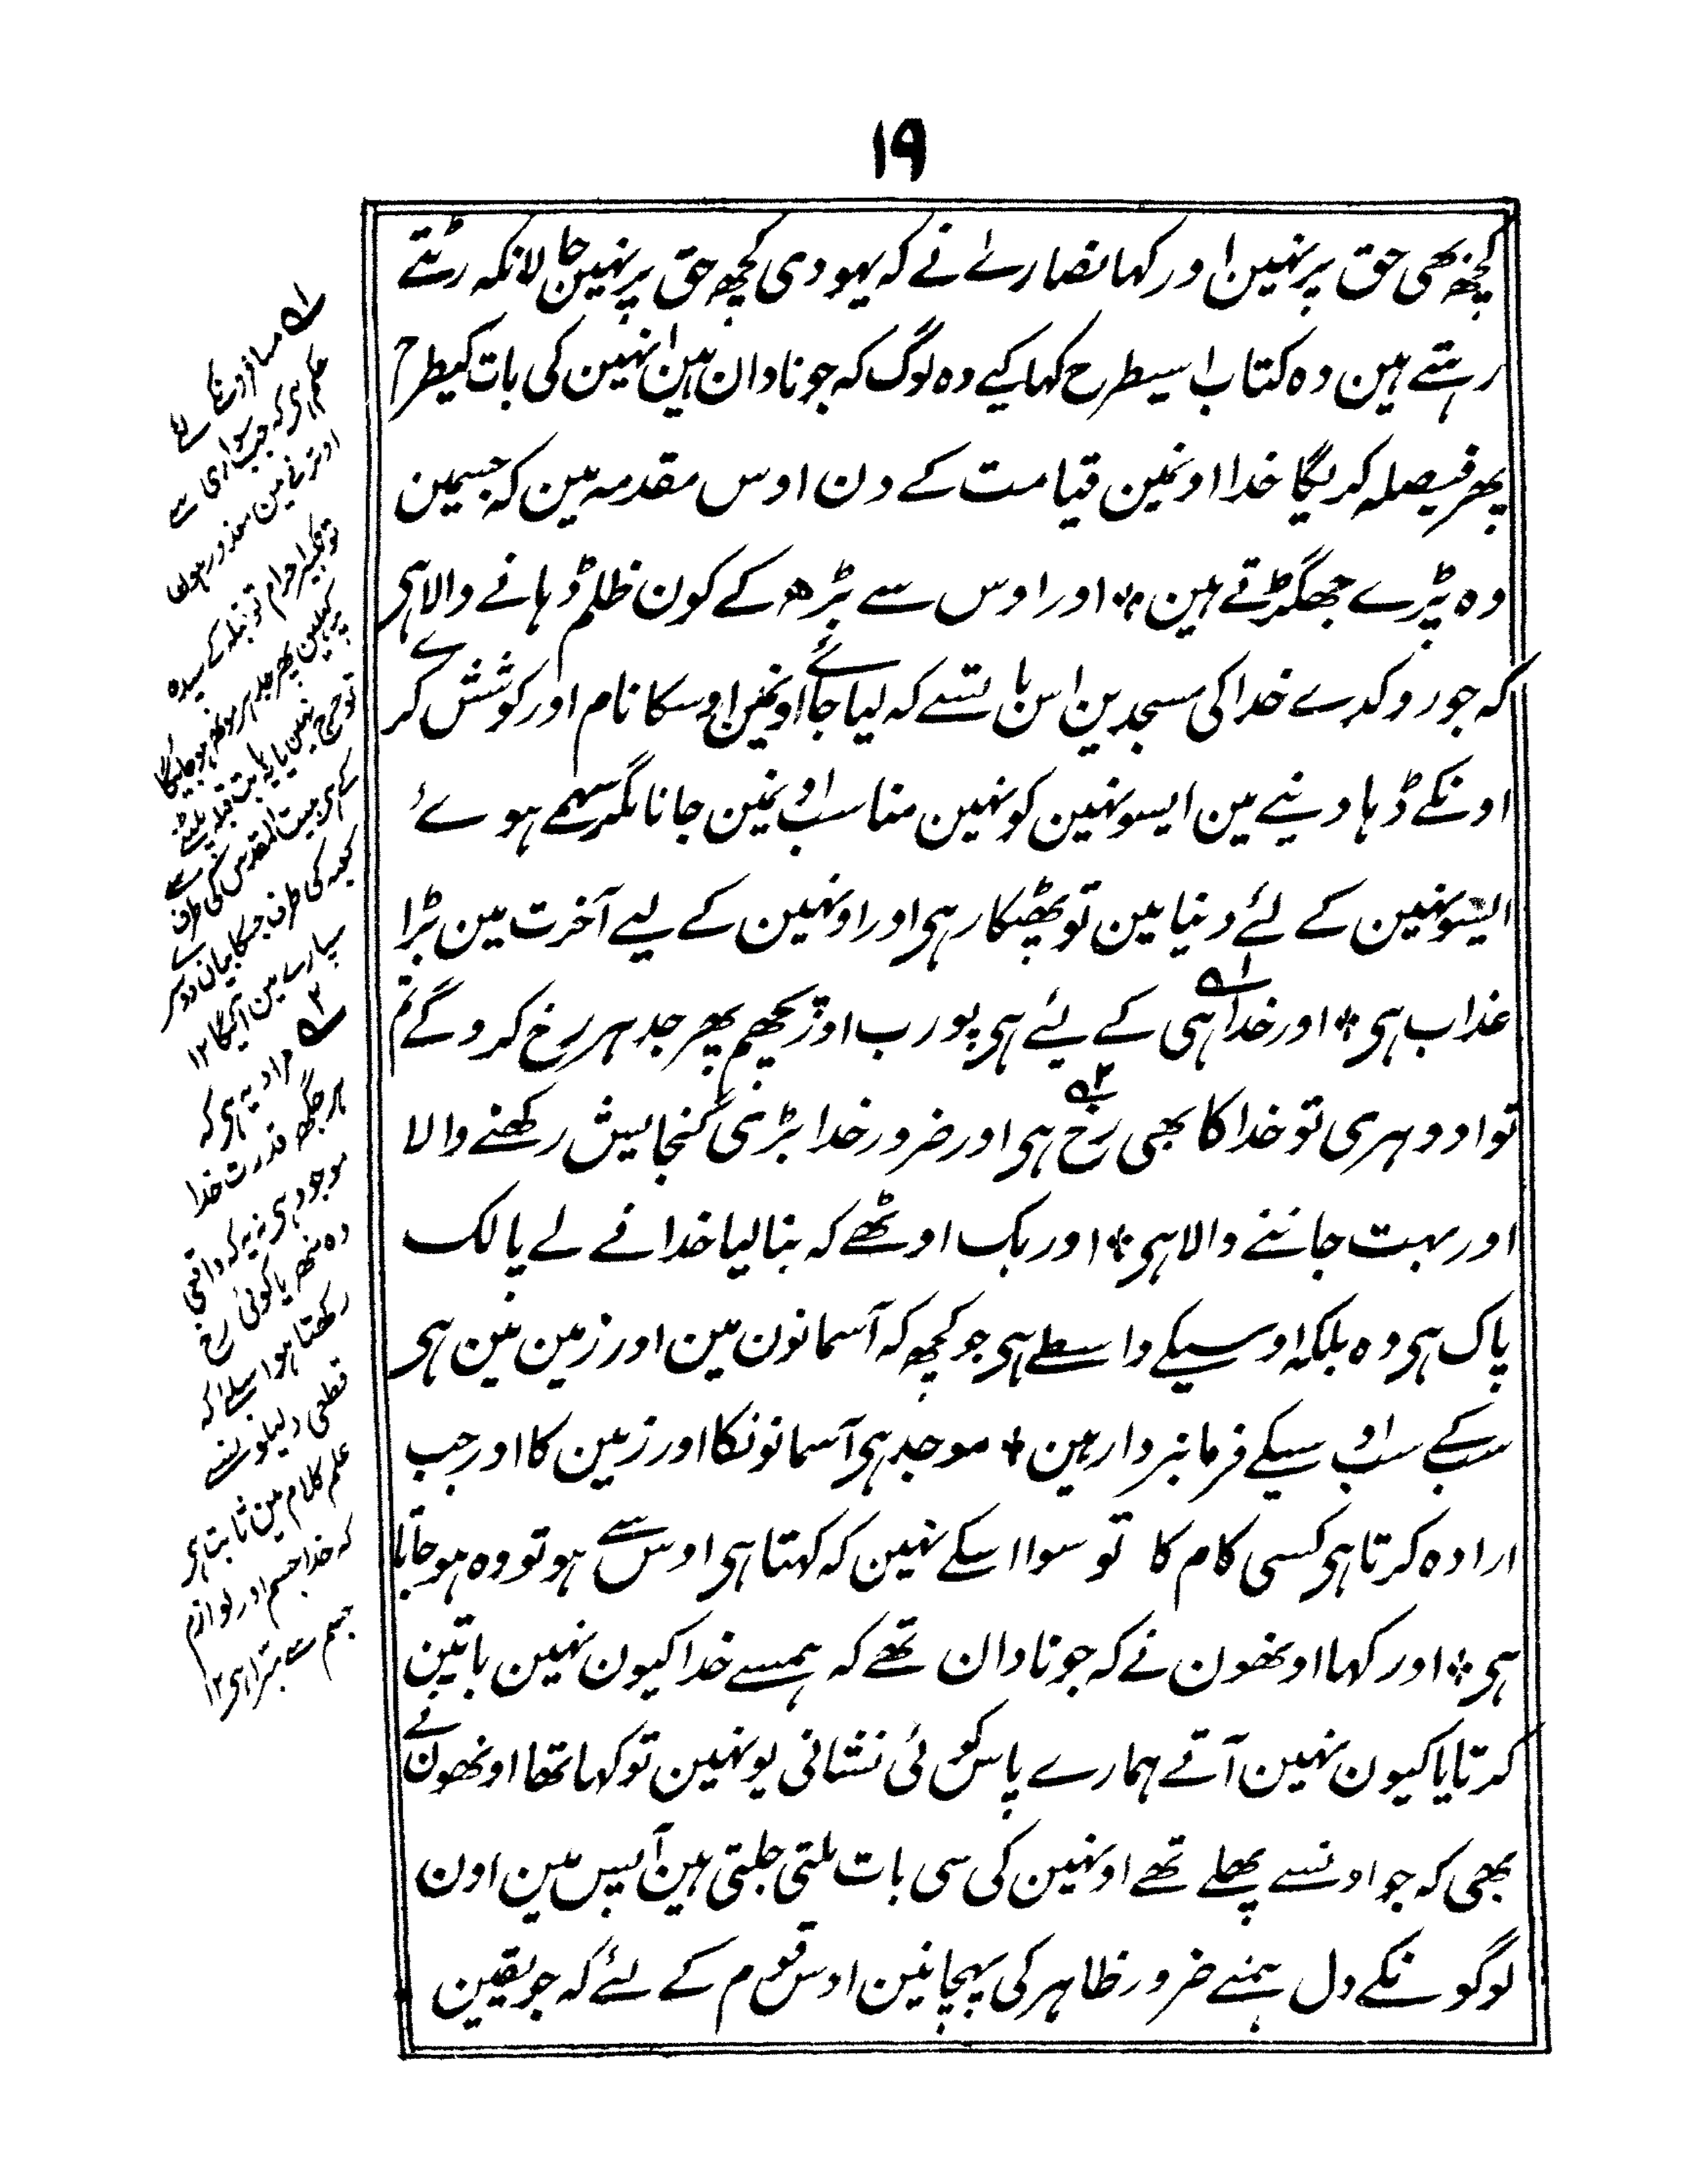 ۱۹
کچھ بھی حق پر نہین اور کہا نصارےٰ نے کہ یہودی کچھ حق پر نہین حالانکہ رٹتے
رہتے ہین وہ کتاب اسیطرح کہا کیے وہ لوگ کہ جو نادان ہین انہین کی بات کیطرح
پھر فیصلہ کریگا خدا اونمین قیامت کے دن اوس مقدمہ مین کہ جسمین
وہ پڑے جھگڑتے ہین ؞ اور اوس سے بڑھ کے کون ظلم ڈہانے والا ہی
کہ جو روکدے خدا کی مسجدین اس بات سے کہ لیا جائے اونمین اوسکا نام اور کوشش کرے
اونکے ڈہا دینے مین ایسونہین کو نہین مناسب اونمین جانا مگر سہمے ہوئے
ایسونہین کے لئے دنیا مین تو پھٹکار ہی اور اونہین کے لیے آخرت مین بڑا
عذاب ہی ؞ اور خدا ہی کے لئے ہی پورب اور پچھم پھر جدہر رخ کروگے تم
تو اودہر ہی تو خدا کا بھی رخ ہی اور ضرور خدا بڑی گنجایش رکھنے والا
اور بہت جاننے والا ہی ؞ اور بک اوٹھے کہ بنا لیا خدا نے لے پالک
پاک ہی وہ بلکہ اوسیکے واسطے ہی جو کچھ کہ آسمانون مین اور زمین مین ہی
سب کے سب اوسیکے فرمانبردار ہین ؞ موجد ہی آسمانونکا اور زمین کا اور جب
ارادہ کرتا ہی کسی کام کا تو سوا اسکے نہین کہ کہتا ہی اوس سے ہو تو وہ ہو جاتا
ہی ؞ اور کہا اونھون نے کہ جو نادان تھے کہ ہمسے خدا کیون نہین باتین
کرتا یا کیون نہین آتے ہمارے پاس کوئی نشانی یونہین تو کہا تھا اونھون نے
بھی کہ جو اونسے پہلے تھے اونہین کی سی بات ملتی جلتی ہین آپس مین اون
لوگونکے دل ہمنے ضرور ظاہر کی پہچانین اوس قوم کے لئے کہ جو یقین
۱ مسافرونکے لئے
حکم ہی کہ جب سواری سے
اوترنے مین معذور ہون
تو تکبیر احرام تو قبلہ کے سیدہ
پر کہین پھر جدہر مونھ ہو جائیگا
تو حرج نہین یا یہ آیت قبلہ پلٹنے
کے ہی بیت المقدس کی طرف سے
کعبہ کی طرف جسکا بیان دوسرے
سپارے مین آئیگا ۱۲
۲ مراد یہ ہی کہ
ہر جگھ قدرت خدا
موجود ہی نہ یہ کہ واقعی
وہ منھ یا کوئی رخ
رکھتا ہو اسلئے کہ
قطعی دلیلونسے
علم کلام مین ثابت ہی
کہ خدا جسم اور لوازم
جسم سے مبرا ہی ۱۲